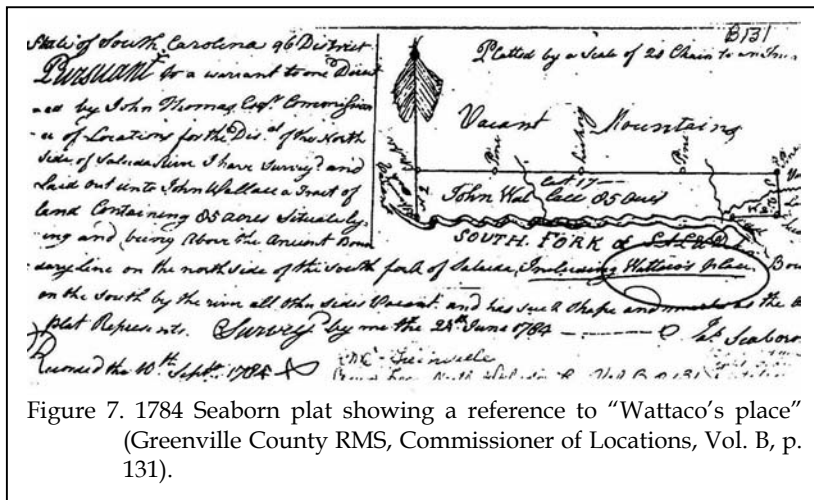 B131
State of South Carolina 96 District
Pursuant to a warrant to one Direct
-ed by John Thomas Esqr. Commission
-er of Locations for the Dis. of the North
Side of Saluda River I have Survey'd and
Laid out unto John Wallace a Tract of
land Containing 85 acres Situate ly-
ing and being Above the Ancient Boun
dary Line on the north side of the South fork of Saluda, Including Wattaco's place. Bou
on the South by the river all other sides Vacant. and has such Shape and marks as the
plat Represents. Survey'd by me the 24th June 1784
Jas. Seaborn
Recorded the 10th Septr. 1784
Platted by a Scale of 20 Chain to an Inch
Vacant Mountains
Pine
Hickory
Pine
Pine
East 17
John Wallace 85 acres
SOUTH FORK of SALUDA
Greenville
Figure 7. 1784 Seaborn plat showing a reference to “Wattaco’s place”
(Greenville County RMS, Commissioner of Locations, Vol. B, p.
131).